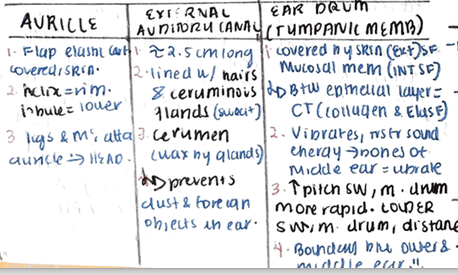 AURICLE
1. Flap elastic cart
covered skin.
2. helix = rim.
lobule = lower
3 ligs & m's atta
auricle → HEAD.
EXTERNAL
AUDITORY CANAL
1. ≈ 2.5 cm long
2. lined w/ hairs
& ceruminous
glands (sweat)
3. cerumen
(wax by glands)
↳ prevents
dust & foreign
objects in ear.
EAR DRUM
(TYMPANIC MEMB)
1. covered in y skin (Ext) SF
Mucosal mem (INT SF)
↳ Btw epithelial layer =
CT (collagen & Elast
2. Vibrates, nstr sound
energy → bones of
middle ear = vibrate
3. ↑ pitch SW, m. drum
more rapid. LOUDER
SW, m. drum, distanc
4. Boundary btw outer &
middle ear."